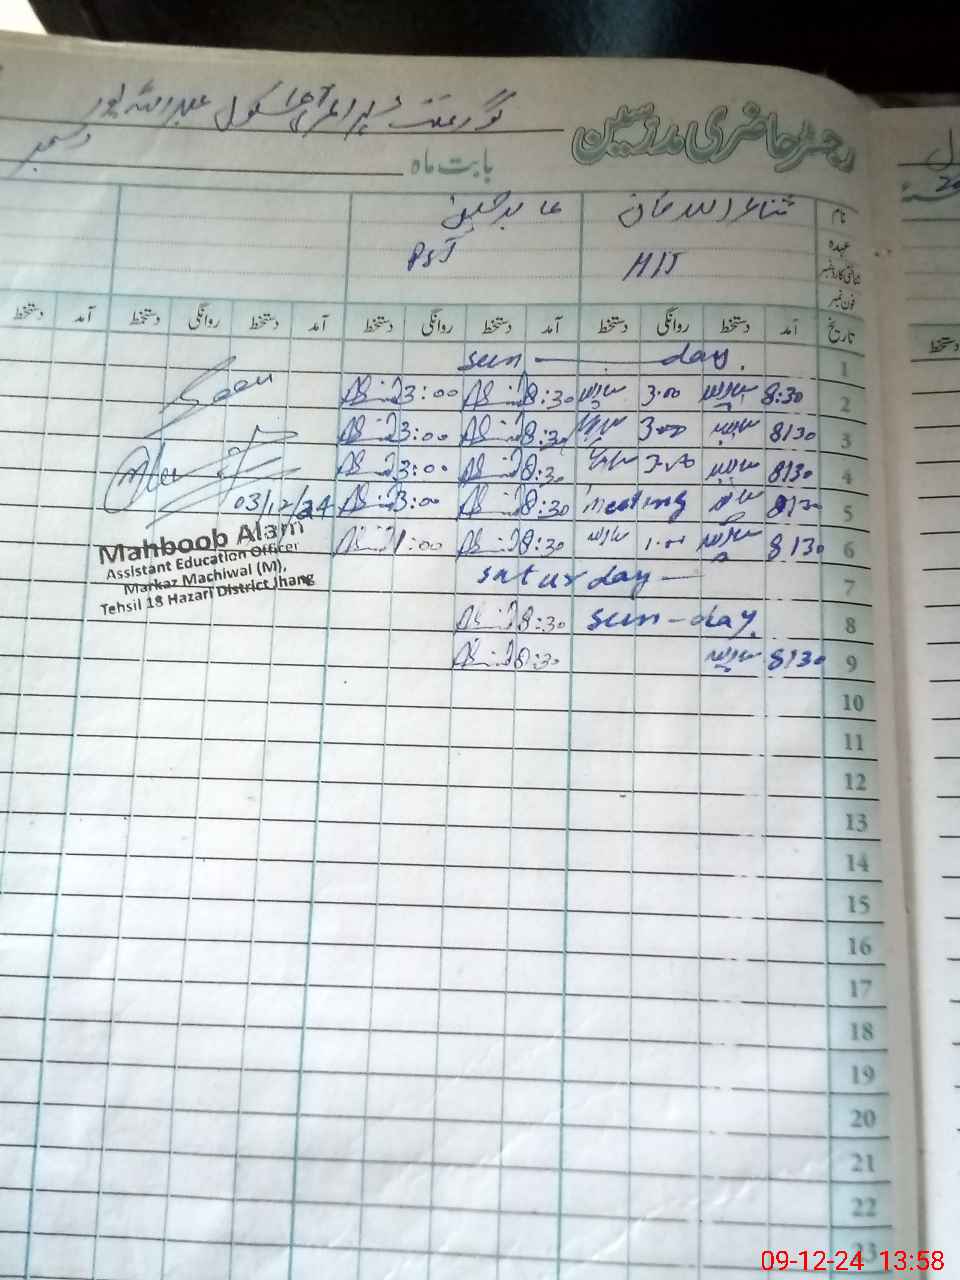 رجسٹر حاضری مدرسین گورنمنٹ پرائمری سکول عبداللہ پور
بابت ماہ دسمبر
نام ثناء اللہ خان عابد حسین
عہدہ
شناختی کارڈ نمبر HIT PST
فون نمبر
تاریخ آمد دستخط روانگی دستخط آمد دستخط روانگی دستخط آمد دستخط روانگی دستخط آمد دستخط
1 sun day.
2 8:30 3:00 8:30 3:00
3 8:30 3:00 8:30 3:00
4 8:30 3:00 8:30 3:00
5 8:30 meeting 8:30 3:00
03/12/24
6 8:30 1:00 8:30 1:00
Mahboob Alam
Assistant Education Officer
Markaz Machiwal (M),
Tehsil 18 Hazari District Jhang
7 saturday
8 sun-day. 8:30
9 8:30 8:30
10
11
12
13
14
15
16
17
18
19
20
21
22
23
دستخط
09-12-24 13:58